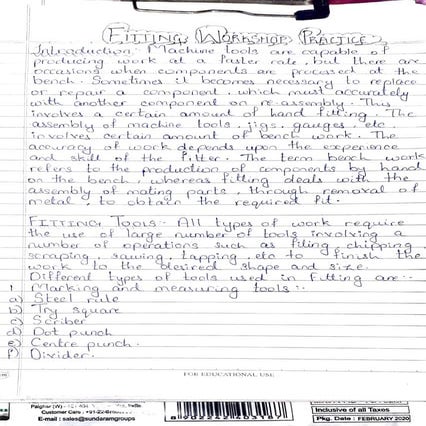 FITTING WORKSHOP PRACTICE:-
Introduction:- Machine tools are capable of
producing work at a faster rate, but there are
occasions when components are processed at the
bench. Sometimes it becomes necessary to replace
or repair a component, which must accurately
with another component on re-assembly. This
involves a certain amount of hand fitting. The
assembly of machine tools, jigs, gauges, etc.
involves certain amount of bench work. The
accuracy of work depends upon the experience
and skill of the fitter. The term bench work
refers to the production of components by hand
on the bench, whereas fitting deals with the
assembly of mating parts, through removal of
metal, to obtain the required fit.
FITTING TOOLS:- All types of work require
the use of large number of tools involving a
number of operations such as filing, chipping,
scraping, sawing, tapping, etc to finish the
work to the desired shape and size.
Different types of tools used in fitting are:-
1. Marking and measuring tools:-
a) Steel rule
b) Try square
c) Scriber
d) Dot punch
e) Centre punch.
f) Divider.
FOR EDUCATIONAL USE
Palghar (W) -
Customer Care : +91-22
E-mail : sales@sundaramgroups
8 902242 403187
Inclusive of all Taxes
Pkg. Date : FEBRUARY 2020